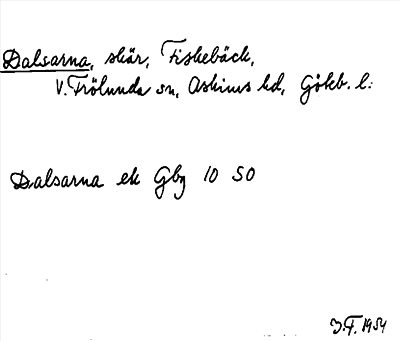 Dalsarna, skär, Fiskebäck,
V. Frölunda sn, Askims hd, Göteb. l:
Dalsarna ek Gbg 10 SO
J.F. 1954